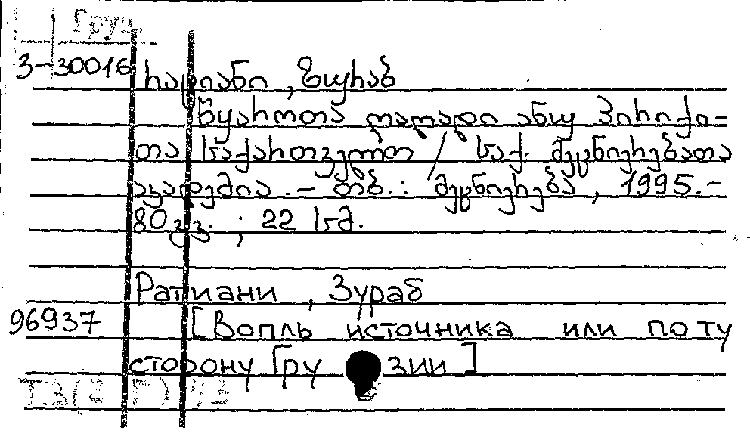 Груз
3-30016
რატიანი, ზურაბ
წყაროთა ღაღადი ანუ პირიქი=
თა საქართველო / საქ. მეცნიერებათა
აკადემია. – თბ.: მეცნიერება, 1995.–
80გვ. ; 22 სმ.
Ратиани, Зураб
96937 [Вопль источника или по ту
сторону Грузии]